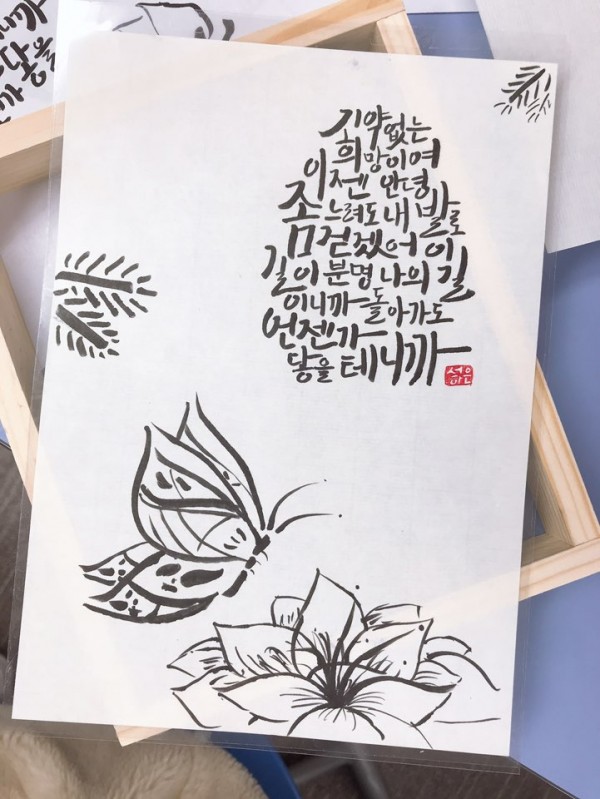 니까
닿을
까
기약없는
희망이여
이젠 안녕
좀 느려도 내 발로
걷겠어 이
길이 분명 나의 길
이니까 돌아가도
언젠가
닿을 테니까